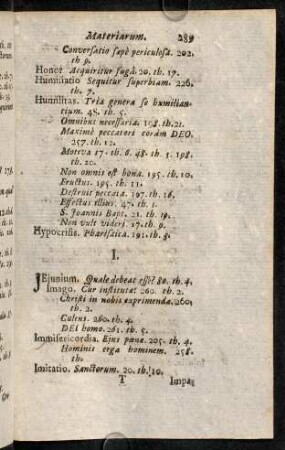 Materiarum. 289
Conversatio sæpè periculosa. 202.
th 9.
Honor Acquiritur fugâ. 20. th. 17.
Humiliatio Sequitur superbiam. 226.
th. 7.
Humilitas. Tria genera se humilian-
tium. 48. th. 5.
Omnibus necessaria. 198. th. 21.
Maximè peccatori coràm DEO.
257. th. 12.
Motiva 17. th. 6. 48. th. 1. 198.
th. 20.
Non omnis est bona. 195. th. 10.
Fructus. 195. th. 11.
Destruit peccata. 197. th. 16.
Effectus illius. 47. th. 1.
S. Joannis Bapt. 21. th. 19.
Non vult videri. 17. th. 9.
Hypocrisis. Pharisaica. 191. th. 3.
I.
JEjunium. Quale debeat esse? 80. th. 4.
Imago. Cur instituta? 260. th. 2.
Christi in nobis exprimenda. 260.
th. 2.
Cultus. 260. th. 4.
DEI homo. 261. th. 5.
Immisericordia. Ejus pœna. 205. th. 4.
Hominis erga hominem. 258.
th.
Imitatio. Sanctorum. 20. th. 10.
T Impa-